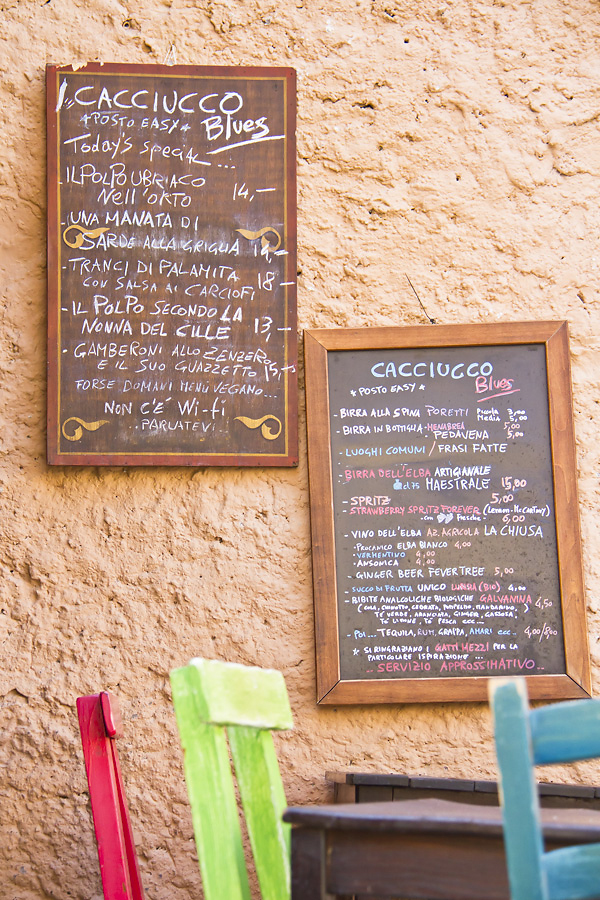 CACCIUCCO
*POSTO EASY* Blues
Today's special...
- IL POLPO UBRIACO
Nell'ORTO 14,-
- UNA MANATA DI
SARDE ALLA GRIGLIA 14,-
- TRANCI DI PALAMITA 18-
CON SALSA AI CARCIOFI
- IL POLPO SECONDO LA
NONNA DEL CILLE 13,-
- GAMBERONI ALLO ZENZERO
E IL SUO GUAZZETTO 15,-
FORSE DOMANI MENÙ VEGANO...
NON C'È Wi-fi
..PARLATEVI..
CACCIUCCO
*POSTO EASY* Blues
- BIRRA ALLA SPINA PORETTI Piccola 3,00
Media 5,00
- BIRRA IN BOTTIGLIA - MENABREA 5,00
- PEDAVENA 5,00
- LUOGHI COMUNI / FRASI FATTE
- BIRRA DELL'ELBA ARTIGIANALE
cl.75 MAESTRALE 15,00
- SPRITZ 5,00
- STRAWBERRY SPRITZ FOREVER (Lennon-McCartney)
- con fresche - 6,00
- VINO DELL'ELBA AZ. AGRICOLA LA CHIUSA
- PROCANICO ELBA BIANCO 4,00
- VERMENTINO 4,00
- ANSONICA 4,00
- GINGER BEER FEVER TREE 5,00
- SUCCO DI FRUTTA UNICO LUNSIA (BIO) 4,00
- BIBITE ANALCOLICHE BIOLOGICHE GALVANINA 4,50
(COLA, CHINOTTO, CEDRATA, POMPELMO, MANDARINO,
TÈ VERDE, ARANCIATA, GINGER, GASSOSA,
TÈ LIMONE, TÈ PESCA ecc...
- POI... TEQUILA, RUM, GRAPPA, AMARI ecc... 4,00/8,00
* SI RINGRAZIANO I GATTI MÉZZI PER LA
PARTICOLARE ISPIRAZIONE...
..SERVIZIO APPROSSIMATIVO..